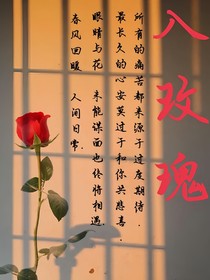 入玫瑰
所有的痛苦都来源于过度期待.
最长久的心安莫过于和你共悲喜.
眼睛与花 未能谋面也终将相遇
春风回暖 人间日常.